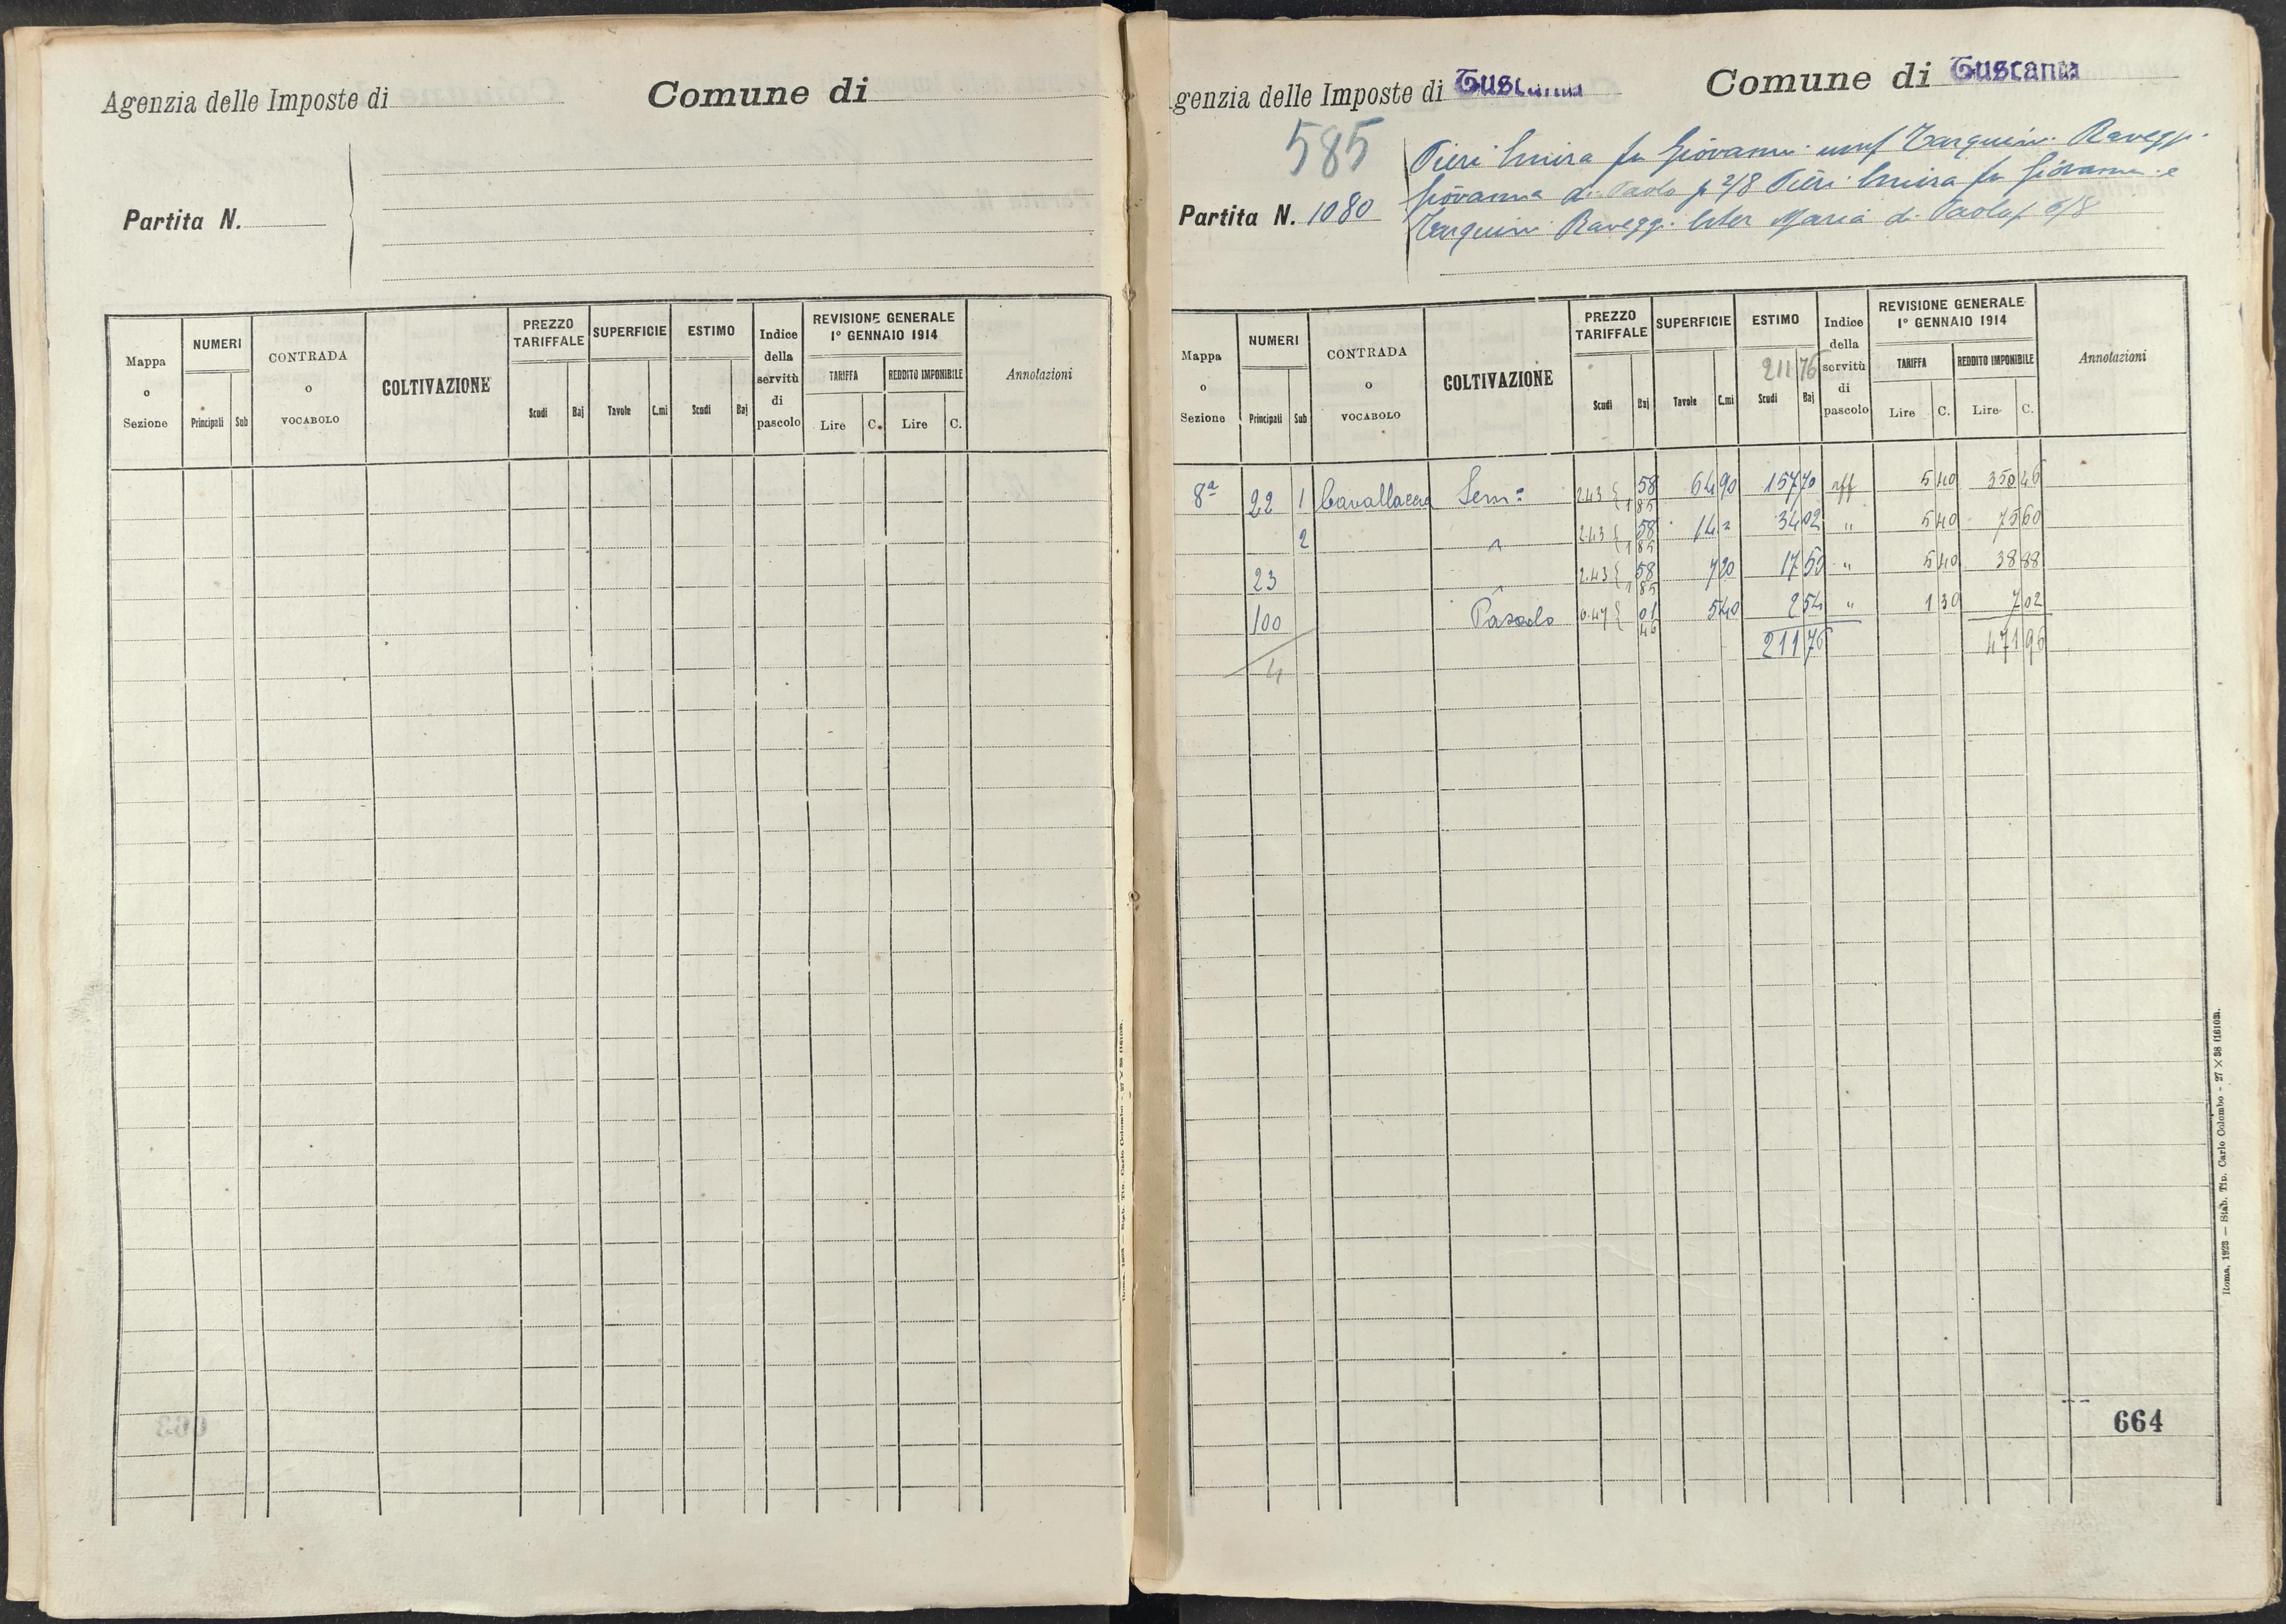 Agenzia delle Imposte di Comune di
Partita N.
Mappa o Sezione NUMERI CONTRADA o VOCABOLO COLTIVAZIONE PREZZO TARIFFALE SUPERFICIE ESTIMO Indice della servitù di pascolo REVISIONE GENERALE 1° GENNAIO 1914 Annotazioni
TARIFFA REDDITO IMPONIBILE
Principali Sub Scudi Baj Tavole C.mi Scudi Baj Lire C. Lire C.
genzia delle Imposte di Tuscania Comune di Tuscania
585
Pieri Elmira fu Giovanni usuf Tarquini Raveggi
Partita N. 1080
Giovanna di Paolo p 2/8 Pieri Elmira fu Giovanni e
Tarquini Raveggi Ester Maria di Paolo p 6/8
Mappa o Sezione NUMERI CONTRADA o VOCABOLO COLTIVAZIONE PREZZO TARIFFALE SUPERFICIE ESTIMO Indice della servitù di pascolo REVISIONE GENERALE 1° GENNAIO 1914 Annotazioni
211 76
TARIFFA REDDITO IMPONIBILE
Principali Sub Scudi Baj Tavole C.mi Scudi Baj Lire C. Lire C.
8ª 22 1 Cavallaccia Sem: 2.43 { 58 1 85 64 90 157 70 aff 5 40 350 46
2 " 2.43 { 58 1 85 14 = 34 02 " 5 40 75 60
23 2.43 { 58 1 85 7 20 17 50 " 5 40 38 88
100 Pascolo 0.47 { 01 46 5 40 2 54 " 1 30 7 02
211 76 471 96
4
664
Roma, 1923 — Stab. Tip. Carlo Colombo - 27 × 38 (1610m.